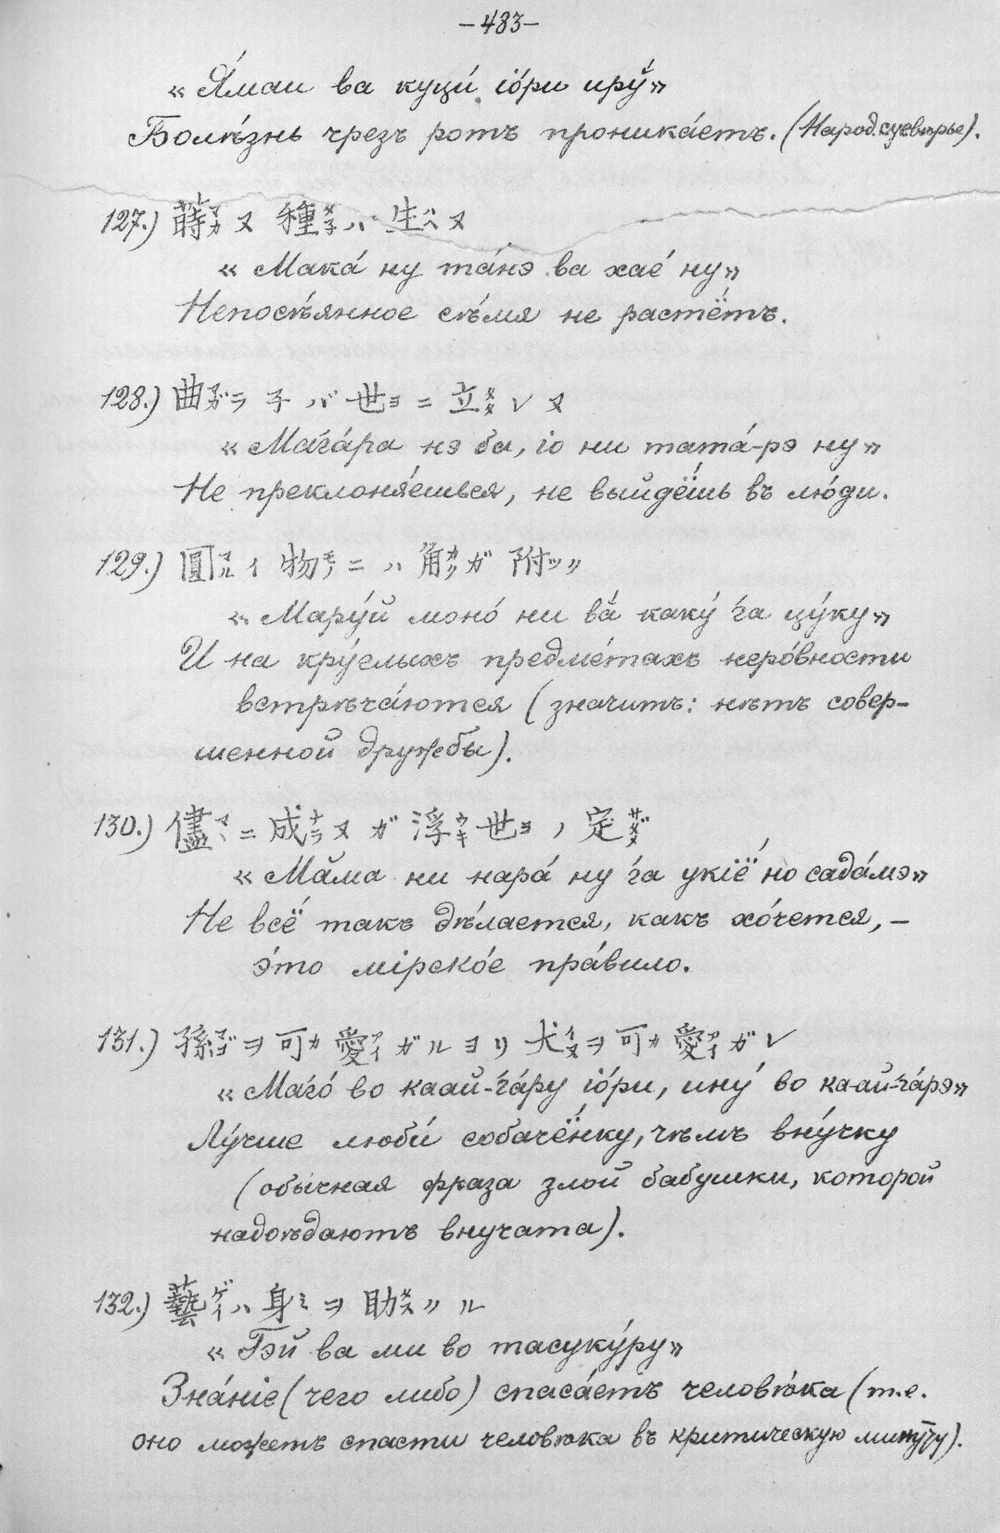 -483-
«Я́маи ва куци́ іо́ри иру́»
Болѣзнь чрезъ ротъ проника́етъ. (Народ. суевѣрье).
127.) 蒔マカヌ 種タネハ 生ハヘヌ
«Мака́ ну та́нэ ва хае́ ну»
Непосѣянное сѣмя не растётъ.
128.) 曲マガラ子バ 世ヨニ 立タタレヌ
«Мага́ра нэ ба, іо ни тата́-рэ ну»
Не преклоня́ешься, не выйдёшь въ лю́ди.
129.) 圓マルイ 物モノニハ 角カクガ 附ツク
«Мару́й моно́ ни вӑ каку́ га цу́ку»
И на кру́глыхъ предме́тахъ неро́вности
встрѣча́ются (значитъ: нѣтъ совер-
шенной дружбы).
130.) 儘マヽニ 成ナラヌガ 浮ウキ世ヨノ 定サダメ
«Мӑма ни нара́ ну га укіё но сада́мэ»
Не всё такъ дѣлается, какъ хо́чется, –
э́то мірско́е пра́вило.
131.) 孫マゴヲ 可カ愛アイガルヨリ 犬イヌヲ 可カ愛アイガレ
«Маго́ во каай-га́ру іо́ри, ину́ во ка-ай-га́рэ»
Лу́чше люби́ собачёнку, чѣмъ вну́чку
(обычная фраза злой бабушки, которой
надоѣдаютъ внучата).
132.) 藝ゲイハ 身ミヲ 助タスクル
«Гэй ва ми во тасуку́ру»
Зна́ніе (чего либо) спаса́етъ человѣка (т.е.
оно можетъ спасти человѣка въ критическую минуту).